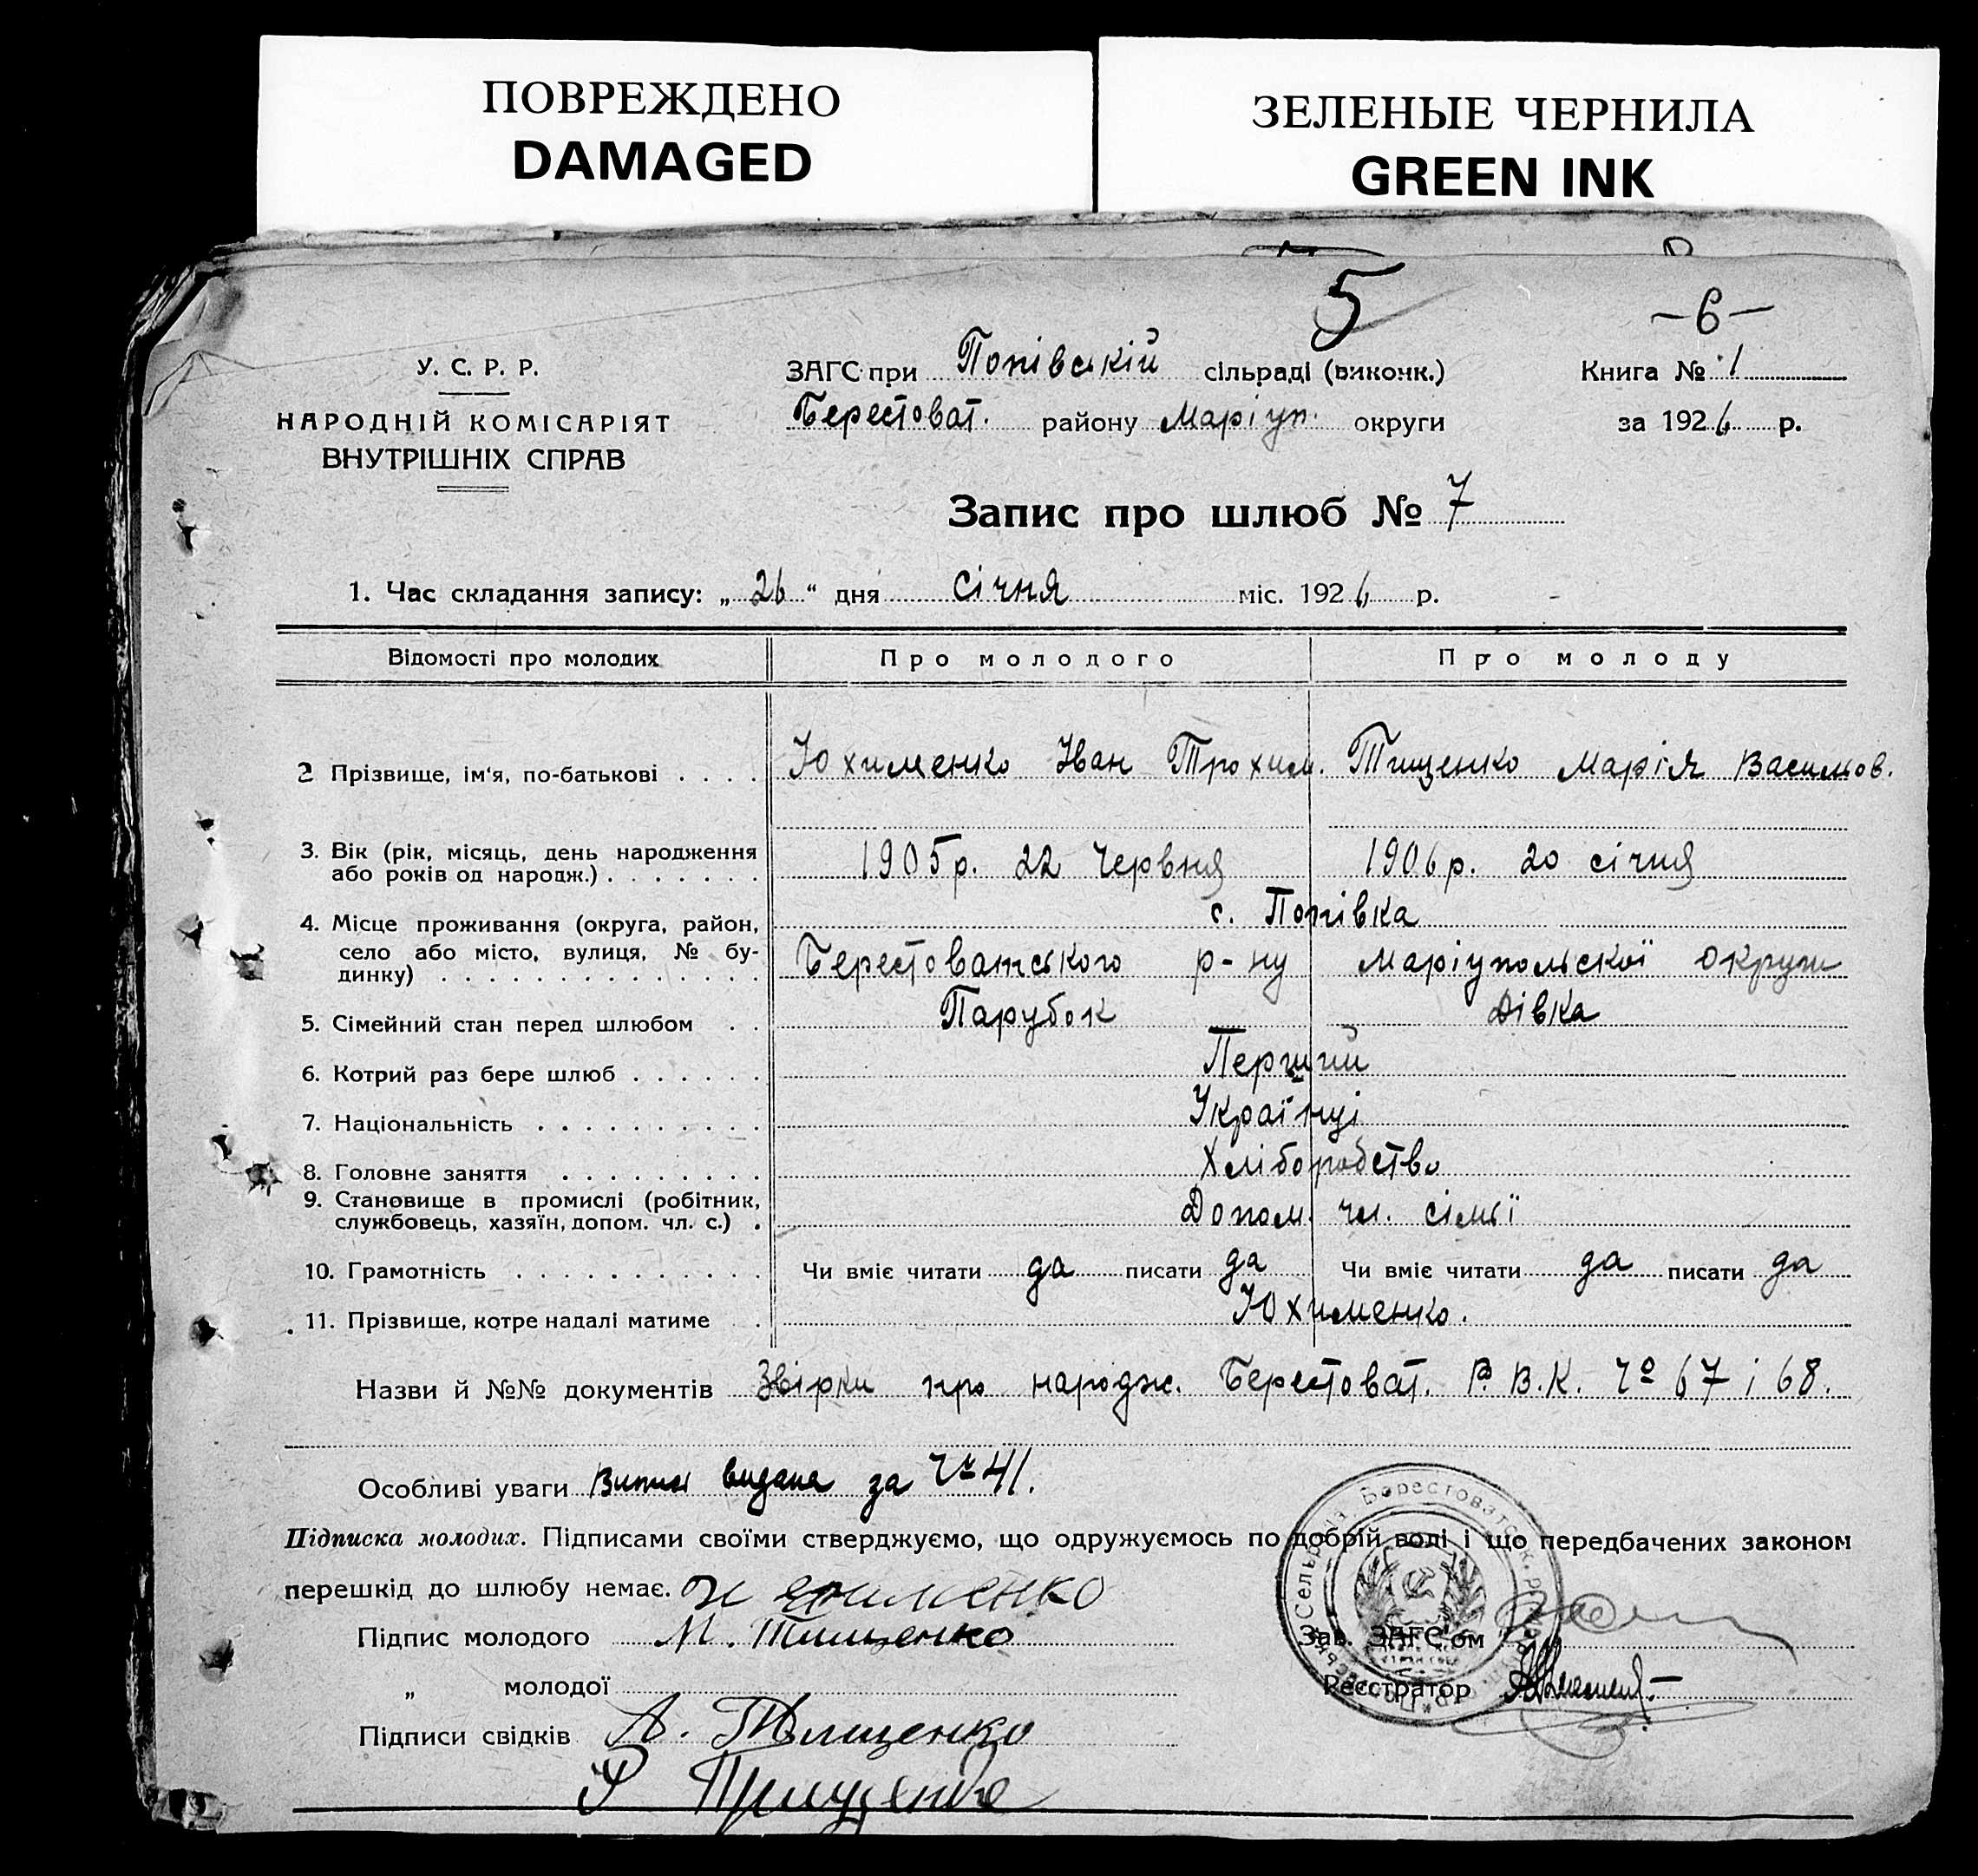 ПОВРЕЖДЕНО
DAMAGED
ЗЕЛЕНЫЕ ЧЕРНИЛА
GREEN INK
5
-6-
У. С. Р. Р.
НАРОДНІЙ КОМІСАРІЯТ
ВНУТРІШНІХ СПРАВ
ЗАГС при Попівській сільраді (виконк.)
Берестоват. району Маріуп. округи
Книга № 1
за 1926 р.
Запис про шлюб № 7
1. Час складання запису: „ 26 “ дня січня міс. 1926 р.
Відомості про молодих Про молодого Про молоду
2 Прізвище, ім'я, по-батькові . . . . Юхименко Іван Трохим. Тищенко Марія Васильов.
3. Вік (рік, місяць, день народження
або років од народж.) . . . . . . . 1905 р. 22 Червня 1906 р. 20 січня
с. Попівка
4. Місце проживання (округа, район,
село або місто, вулиця, № бу-
динку) . . . . . . . . . . . . . . Берестоватського р-ну Маріупольскої Округи
5. Сімейний стан перед шлюбом . . Парубок Дівка
6. Котрий раз бере шлюб . . . . . . Перший
7. Національність . . . . . . . . . . Українці
8. Головне заняття . . . . . . . . . Хліборобство
9. Становище в промислі (робітник,
службовець, хазяїн, допом. чл. с.) . Допом. чл. сімьї
10. Грамотність . . . . . . . . . . . Чи вміє читати да писати да Чи вміє читати да писати да
11. Прізвище, котре надалі матиме . . Юхименко.
Назви й №№ документів Звірки про народж. Берестоват. Р.В.К. Чº 67 і 68.
Особливі уваги Випис видана за Чº 41.
Підписка молодих. Підписами своїми стверджуємо, що одружуємось по добрій волі і що передбачених законом
перешкід до шлюбу немає.
Підпис молодого М. Тищенко
„ молодої
Підписи свідків А. Тищенко
Зав. ЗАГС'ом
Реєстратор